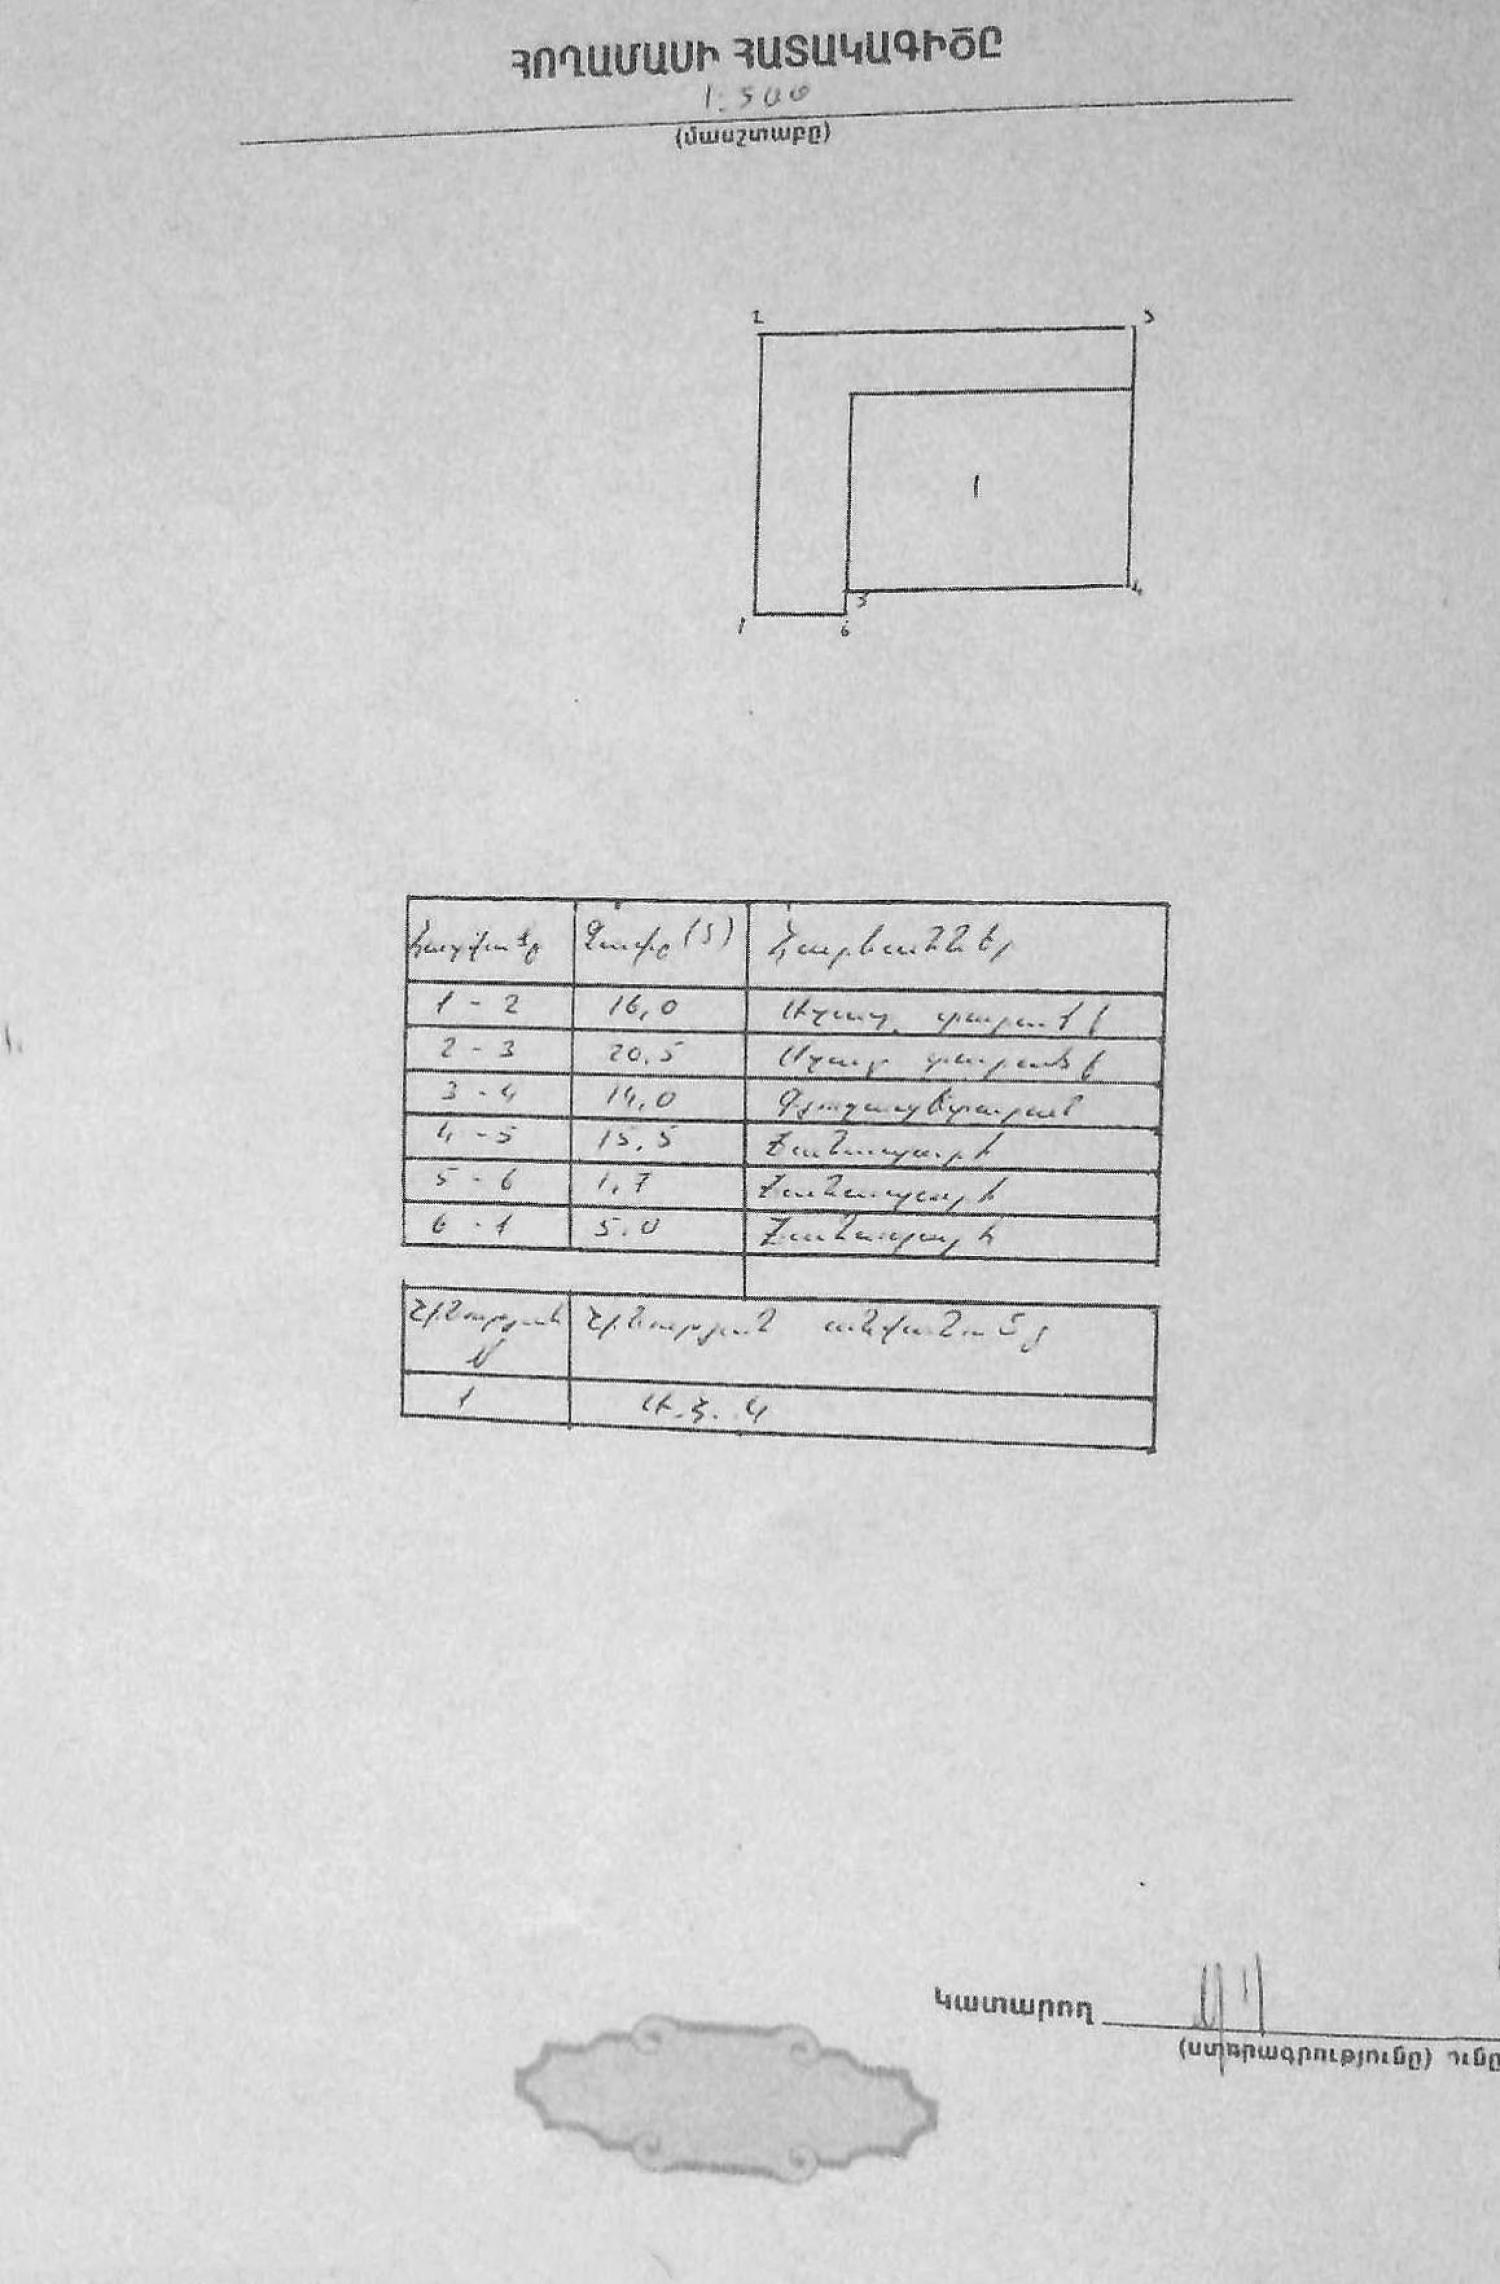 ՀՈՂԱՄԱՍԻ ՀԱՏԱԿԱԳԻԾԸ
1:500
(մասշտաբը)
2 3
1
5 4
1 6
Հատվածը Չափը (մ) Հարևաններ
1 - 2 16,0 Ազատ տարածք
2 - 3 20.5 Ազատ տարածք
3 - 4 14,0
4 - 5 15,5 Ճանապարհ
5 - 6 1,7 Ճանապարհ
6 - 1 5.0 Ճանապարհ
Շինության Շինության անվանումը
№
1 Ա.Հ. Կ
Կատարող
(ստորագրությունը)